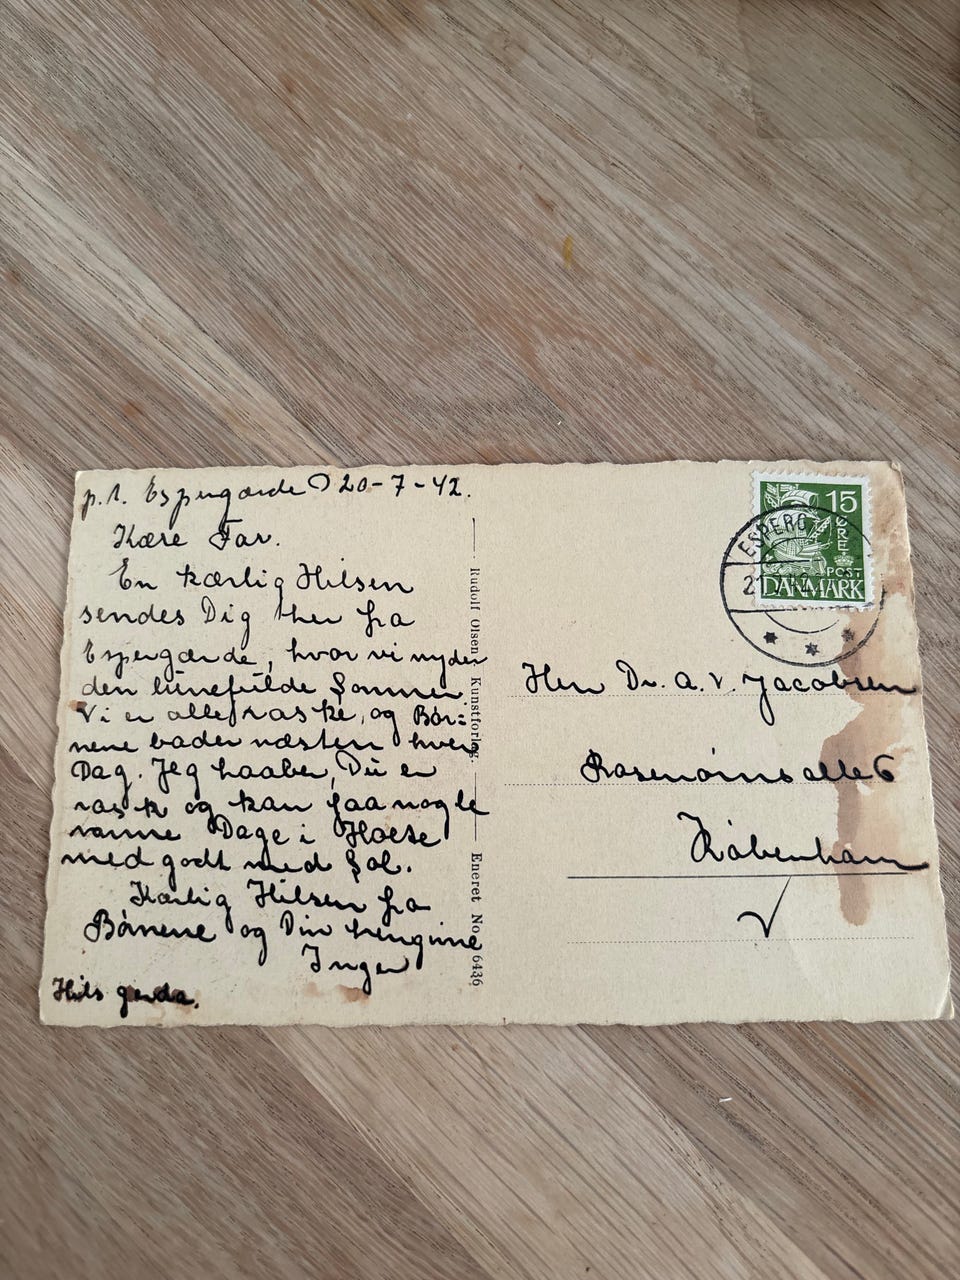 p. t. Espergærde D 20-7-42.
Kære Far.
En kærlig Hilsen
sendes Dig her fra
Espergærde, hvor vi nyder
den lunefulde Sommer.
Vi er alle raske, og Bør=
nene bader næsten hver
Dag. Jeg haaber, Du er
rask og kan faa nogle
varme Dage i Holte
med godt med Sol.
Kærlig Hilsen fra
Børnene og Din hengivne
Inger
Hils Gerda.
Rudolf Olsen Kunstforlag.
Eneret No 6436
15
ØRE
POST
DANMARK
ESPERG
Herr Dr. A. V. Jacobsen
Rosenørns alle 6
København
V